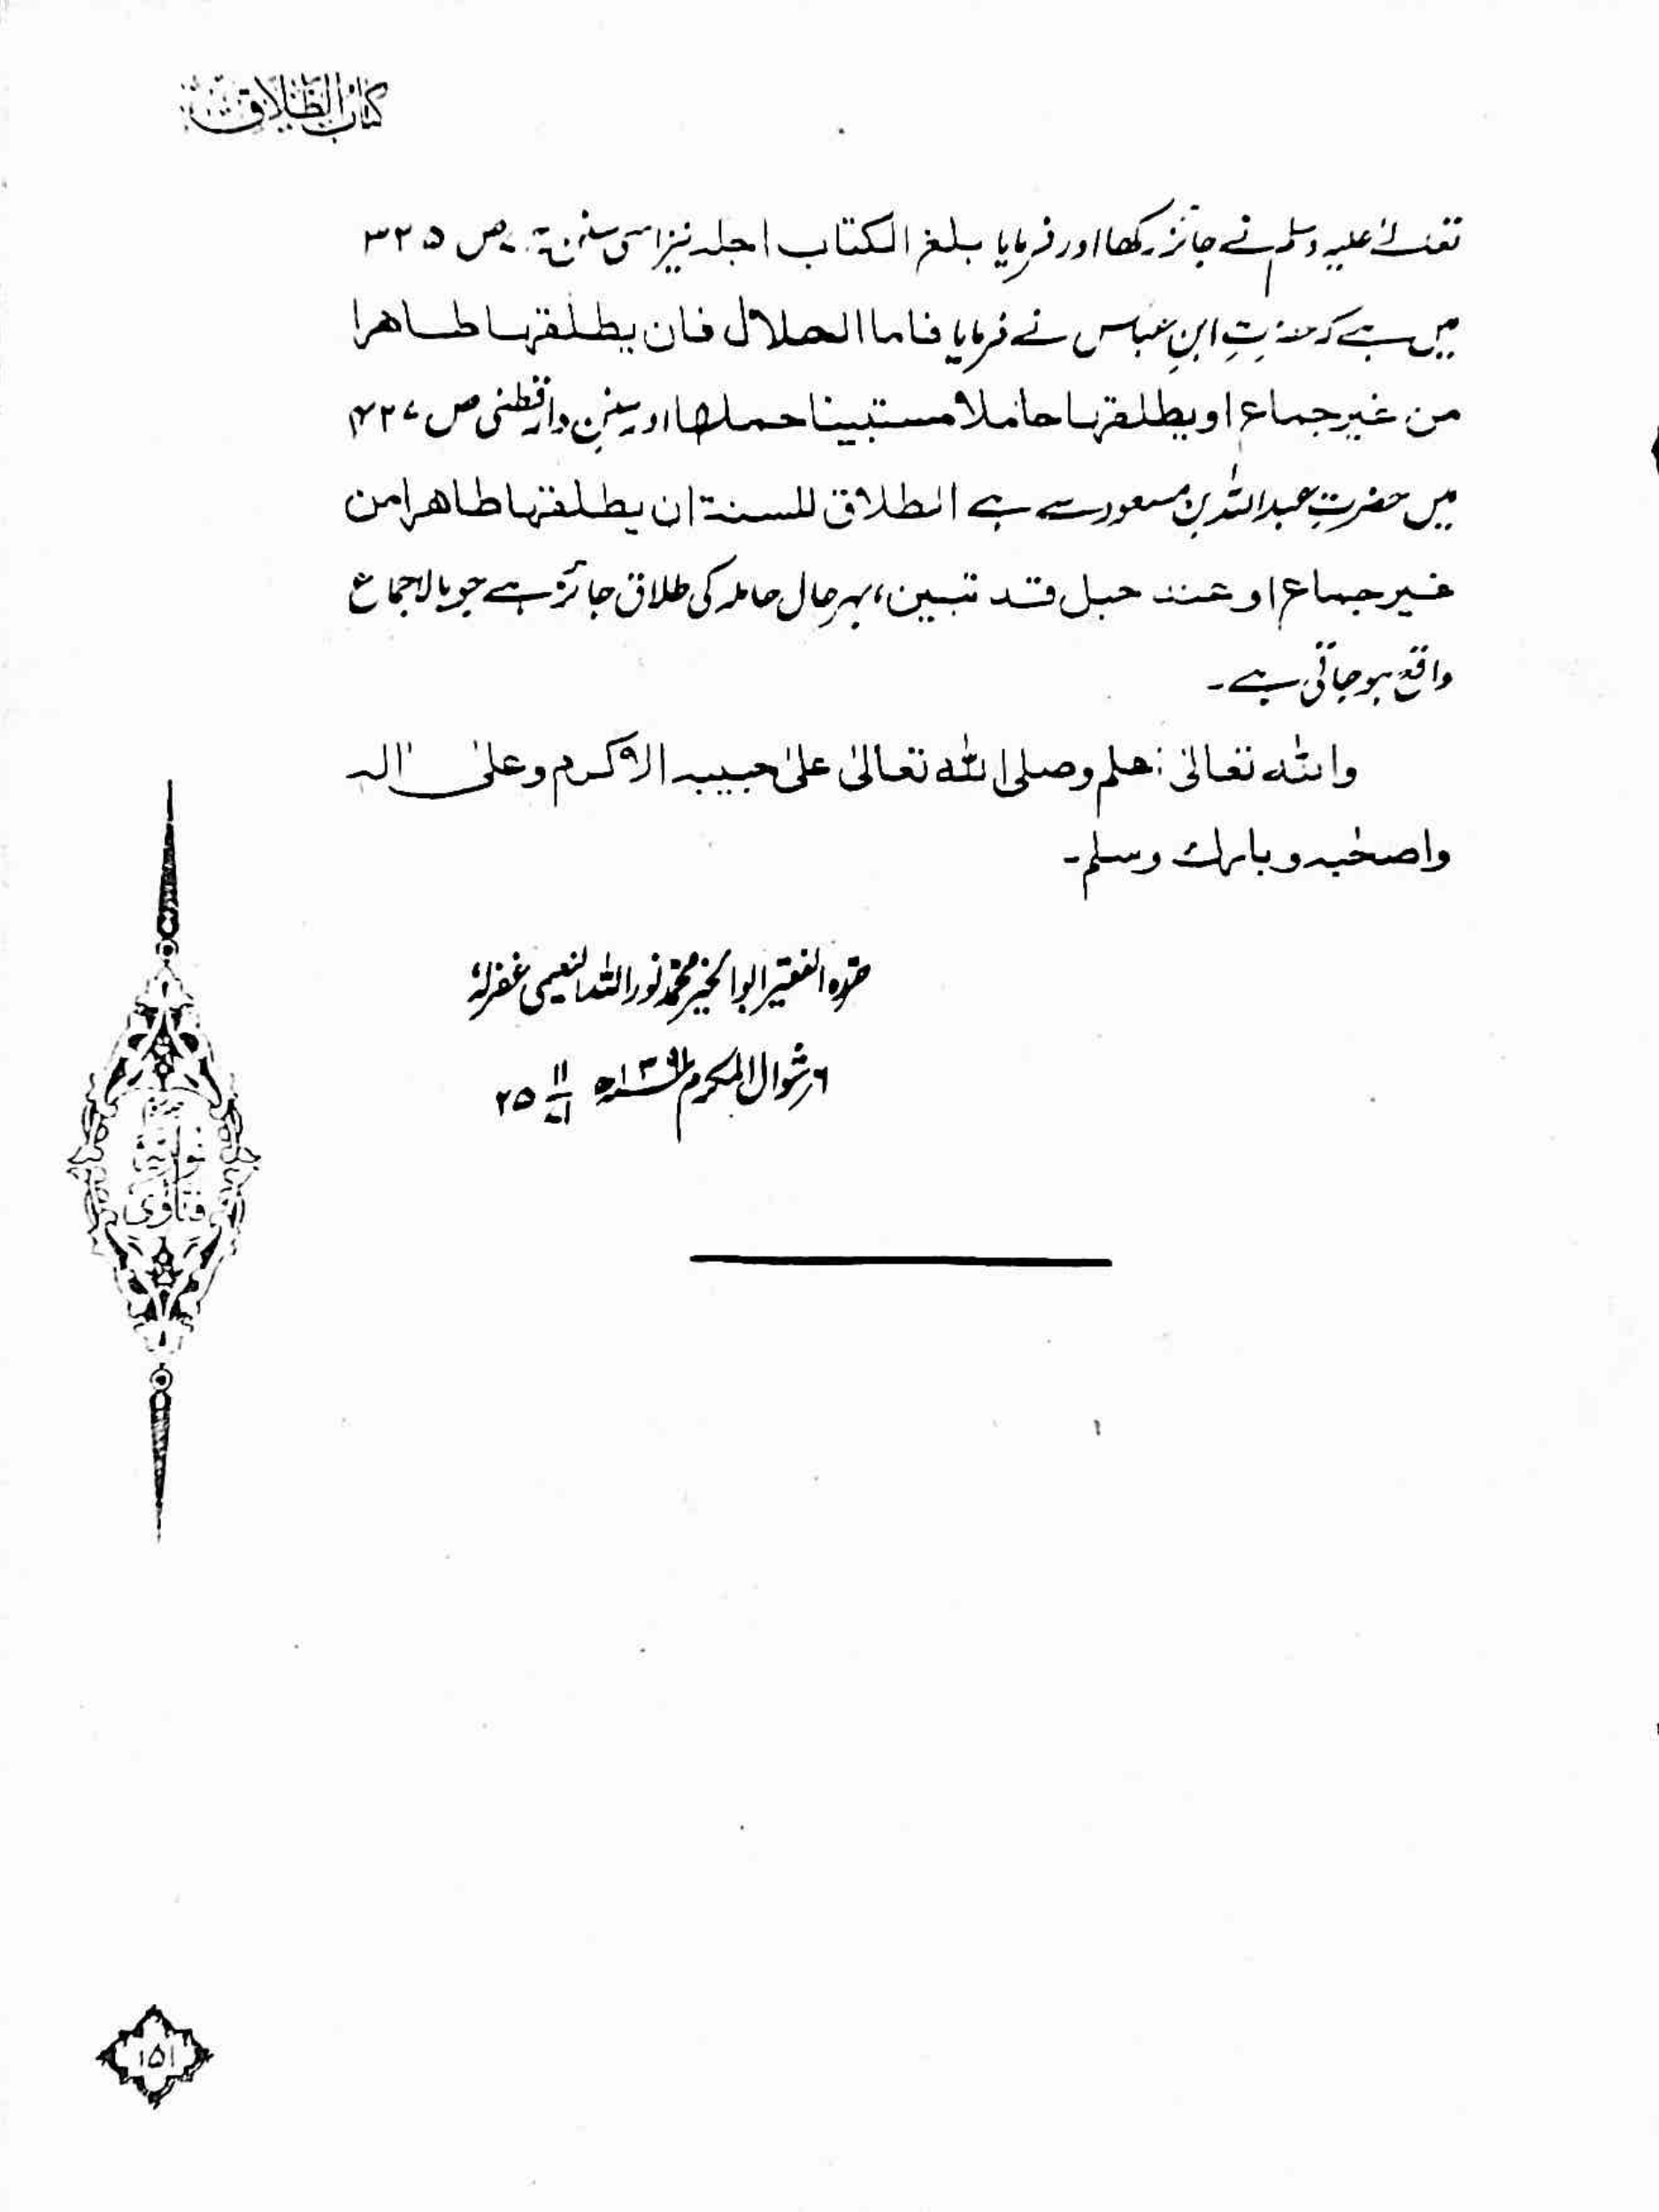 کتاب الطلاق
تعالٰے علیہ وسلم نے جائز رکھا اور فرمایا بلغ الکتاب اجلہ نیز اسی سنن ص ۳۲۵
میں ہے کہ حضرتِ ابنِ عباس نے فرمایا فاما الحلال فان یطلقہا طاھرا
من غیر جماع او یطلقہا حاملا مستبینا حملہا اور سننِ دارقطنی ص
میں حضرتِ عبداللہ بن مسعود سے ہے الطلاق للسنۃ ان یطلقہا طاھرا من
غیر جماع او عند حبل قد تبین، بہرحال حاملہ کی طلاق جائز ہے جو بالاجماع
واقع ہو جاتی ہے۔
واللہ تعالیٰ اعلم وصلی اللہ تعالیٰ علیٰ حبیبہ الاکرم وعلیٰ اٰلہ
واصحٰبہ وبارک وسلم۔
حررہ الفقیر ابوالخیر محمد نور اللہ النعیمی غفرلہٗ
۶ شوال المکرم ۱۳۹۱ھ ۲۵ ۱۱ ۷۱
فتاویٰ نوریہ
۱۵۱